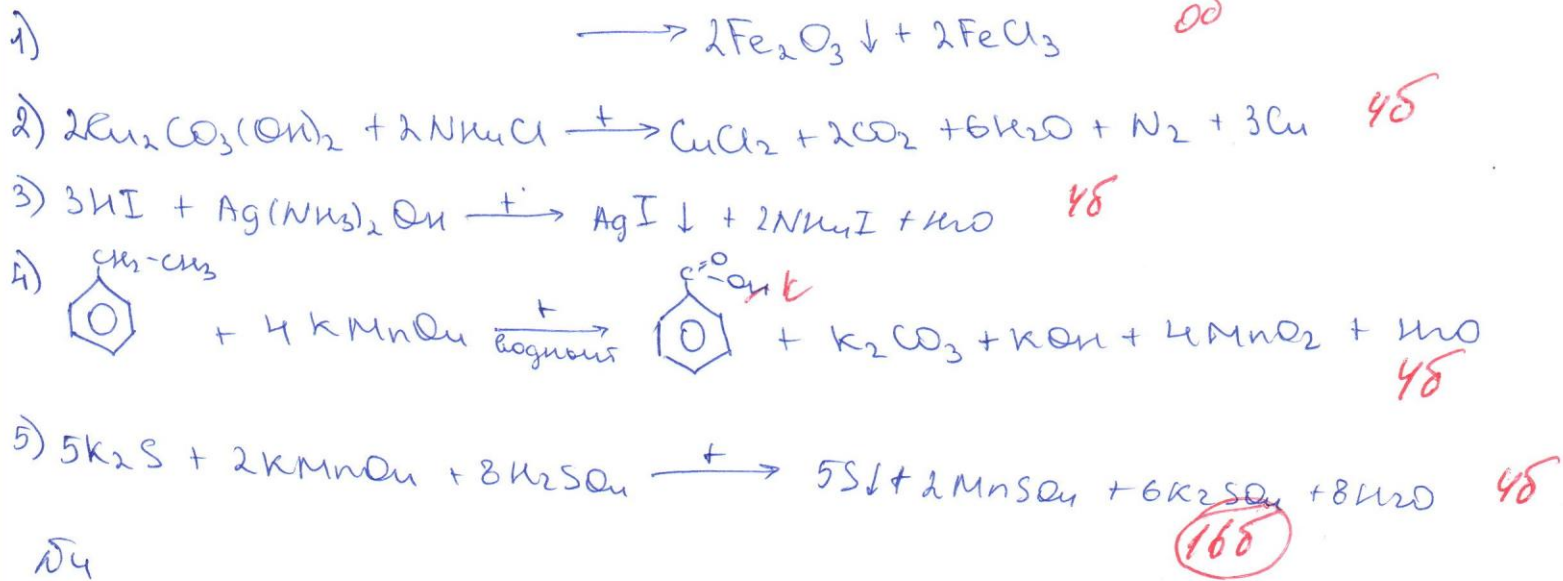 1) → 2Fe₂O₃↓ + 2FeCl₃ 0б
2) 2Cu₂CO₃(OH)₂ + 2NH₄Cl —t→ CuCl₂ + 2CO₂ + 6H₂O + N₂ + 3Cu 4б
3) 3HI + Ag(NH₃)₂OH —t→ AgI↓ + 2NH₄I + H₂O 4б
4) CH₂-CH₃ + 4KMnO₄ —t→ водный C=O -OH K + K₂CO₃ + KOH + 4MnO₂ + H₂O
4б
5) 5K₂S + 2KMnO₄ + 8H₂SO₄ —t→ 5S↓ + 2MnSO₄ + 6K₂SO₄ + 8H₂O 4б
16б
№4